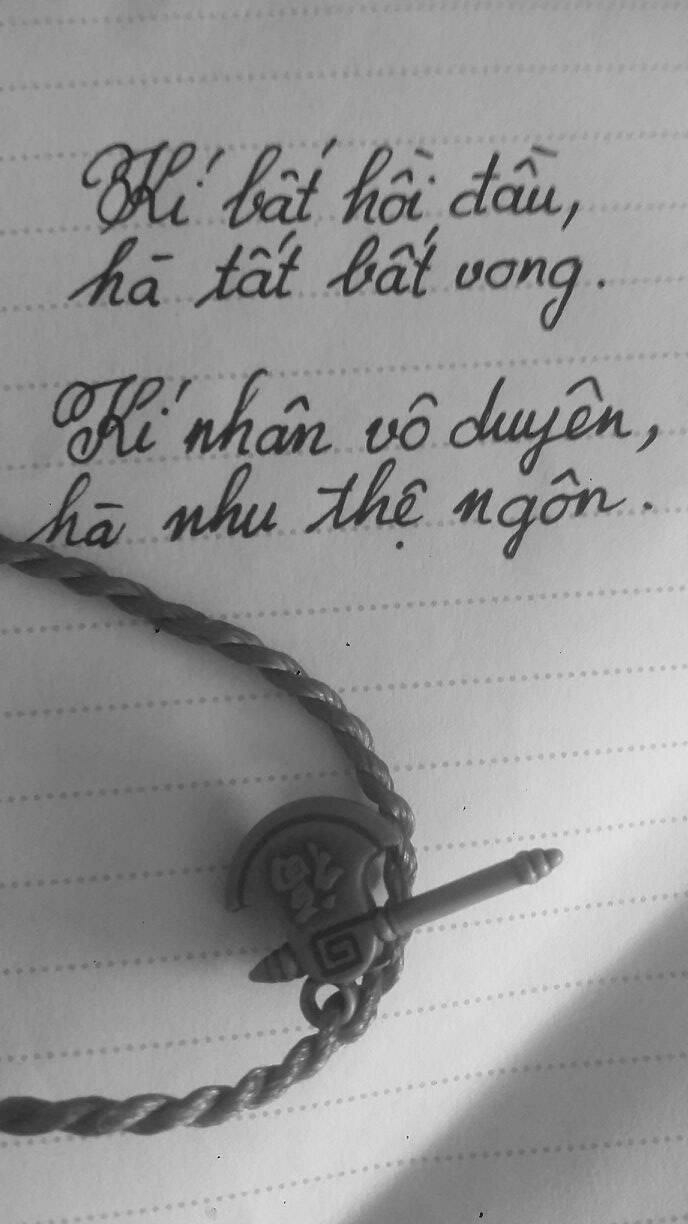 Kí bất hồi đầu,
hà tất bất vong.
Kí nhân vô duyên,
hà như thệ ngôn.